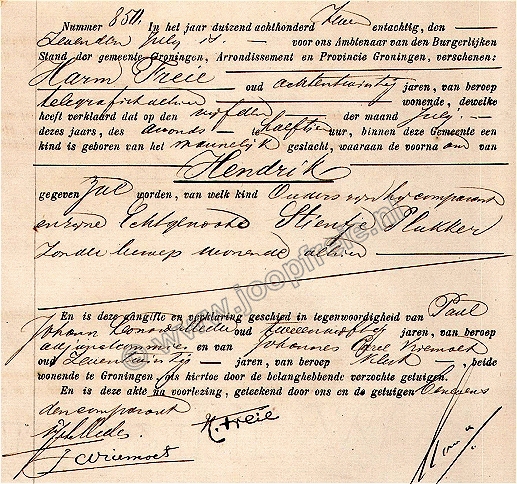 Nummer 850. In het jaar duizend achthonderd twee entachtig, den
zevenden July is voor ons Ambtenaar van den Burgerlijken
Stand der gemeente Groningen, Arrondissement en Provincie Groningen, verschenen:
Harm Freie
oud achtentwintig jaren, van beroep
telegrafist alhier wonende, dewelke
heeft verklaard dat op den vijfden der maand July
dezes jaars, des avonds te half tien uur, binnen deze Gemeente een
kind is geboren van het mannelijk geslacht, waaraan de voornaam van
Hendrik
gegeven zal worden, van welk kind Ouders zijn hij comparant
en zijne Echtgenoote Stientje Plukker
zonder beroep wonende alhier
En is deze aangifte en verklaring geschied in tegenwoordigheid van Paul
Johann oud tweeenvijftig jaren, van beroep
en van Johannes Wiemoet
oud zevenentwintig jaren, van beroep klerk, beide
wonende te Groningen, als hiertoe door de belanghebbende verzochte getuigen.
En is deze akte na voorlezing, geteekend door ons en de getuigen benevens
den comparant
H. Freie
©www.joopfreie.nl